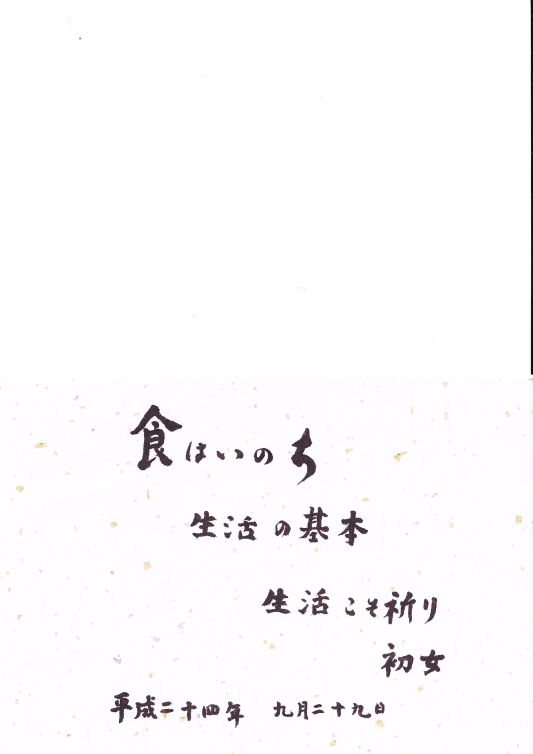 食はいのち
生活の基本
生活こそ祈り
初女
平成二十四年 九月二十九日